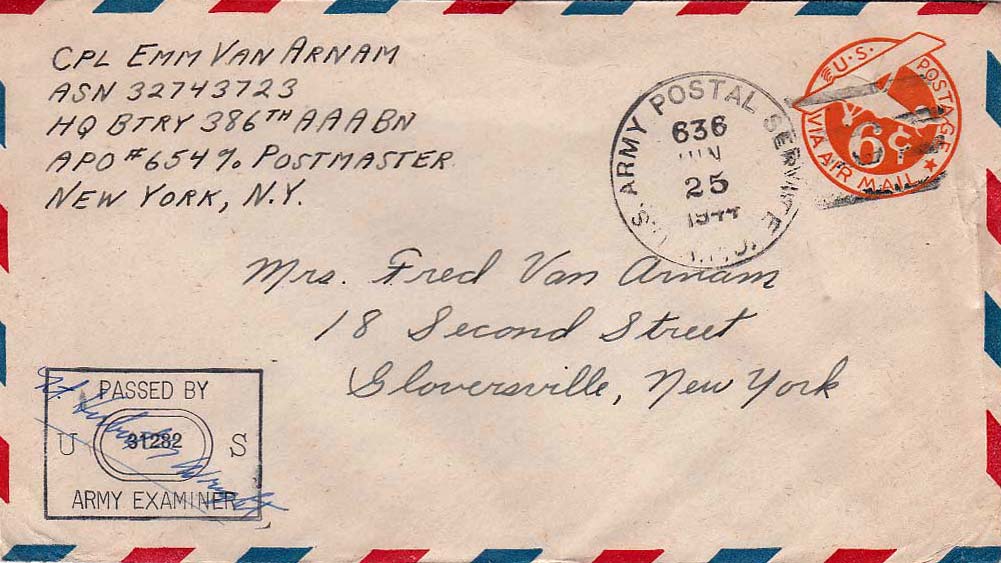 CPL EMM VAN ARNAM
ASN 32743723
HQ BTRY 386TH AAABN
APO #654 % POSTMASTER
NEW YORK, N.Y.
U.S. ARMY POSTAL SERVICE
636
JUN
25
1944
A.P.O.
U.S. POSTAGE
6¢
VIA AIR MAIL
Mrs. Fred Van Arnam
18 Second Street
Gloversville, New York
PASSED BY
U 31282 S
ARMY EXAMINER